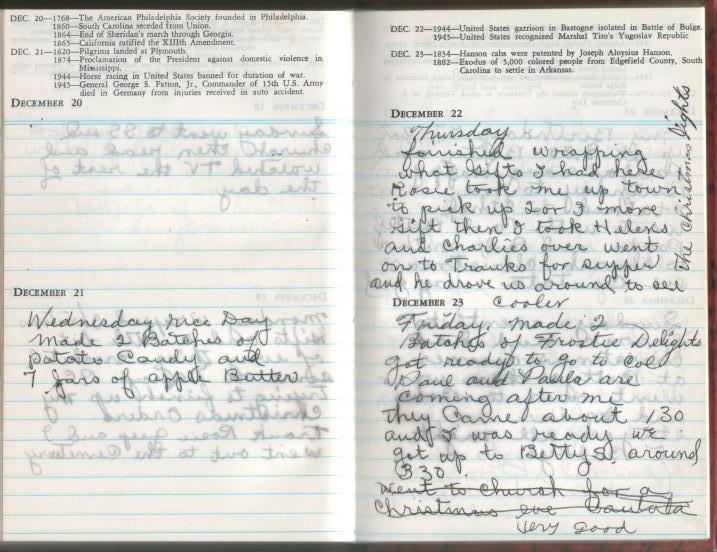 DEC. 20—1768—The American Philadelphia Society founded in Philadelphia.
1860—South Carolina seceded from Union.
1864—End of Sheridan's march through Georgia.
1865—California ratified the XIIIth Amendment.
DEC. 21—1620—Pilgrims landed at Plymouth.
1874—Proclamation of the President against domestic violence in
Mississippi.
1944—Horse racing in United States banned for duration of war.
1945—General George S. Patton, Jr., Commander of 15th U.S. Army
died in Germany from injuries received in auto accident.
DECEMBER 20
DECEMBER 21
Wednesday nice Day
made 2 Batches of
potato Candy and
7 Jars of apple Butter
DEC. 22—1944—United States garrison in Bastogne isolated in Battle of Bulge.
1945—United States recognized Marshal Tito's Yugoslav Republic
DEC. 23—1834—Hanson cabs were patented by Joseph Aloysius Hanson.
1882—Exodus of 5,000 colored people from Edgefield County, South
Carolina to settle in Arkansas.
DECEMBER 22
Thursday
finished wrapping
what gifts I had here
Rosie took me up town
to pick up 2 or 3 more
gift then I took Helens
and Charlies over went
on to Tranks for supper
and he drove us around to see
the Christmas lights
DECEMBER 23
Cooler
Friday, made 2
Batches of Frostie Delights
got ready to go to Col
Paul and Paula are
coming after me
they Came about 130
and I was ready we
got up to Bettys around
3 30.
went to church for a
christmas eve Cantata
very good